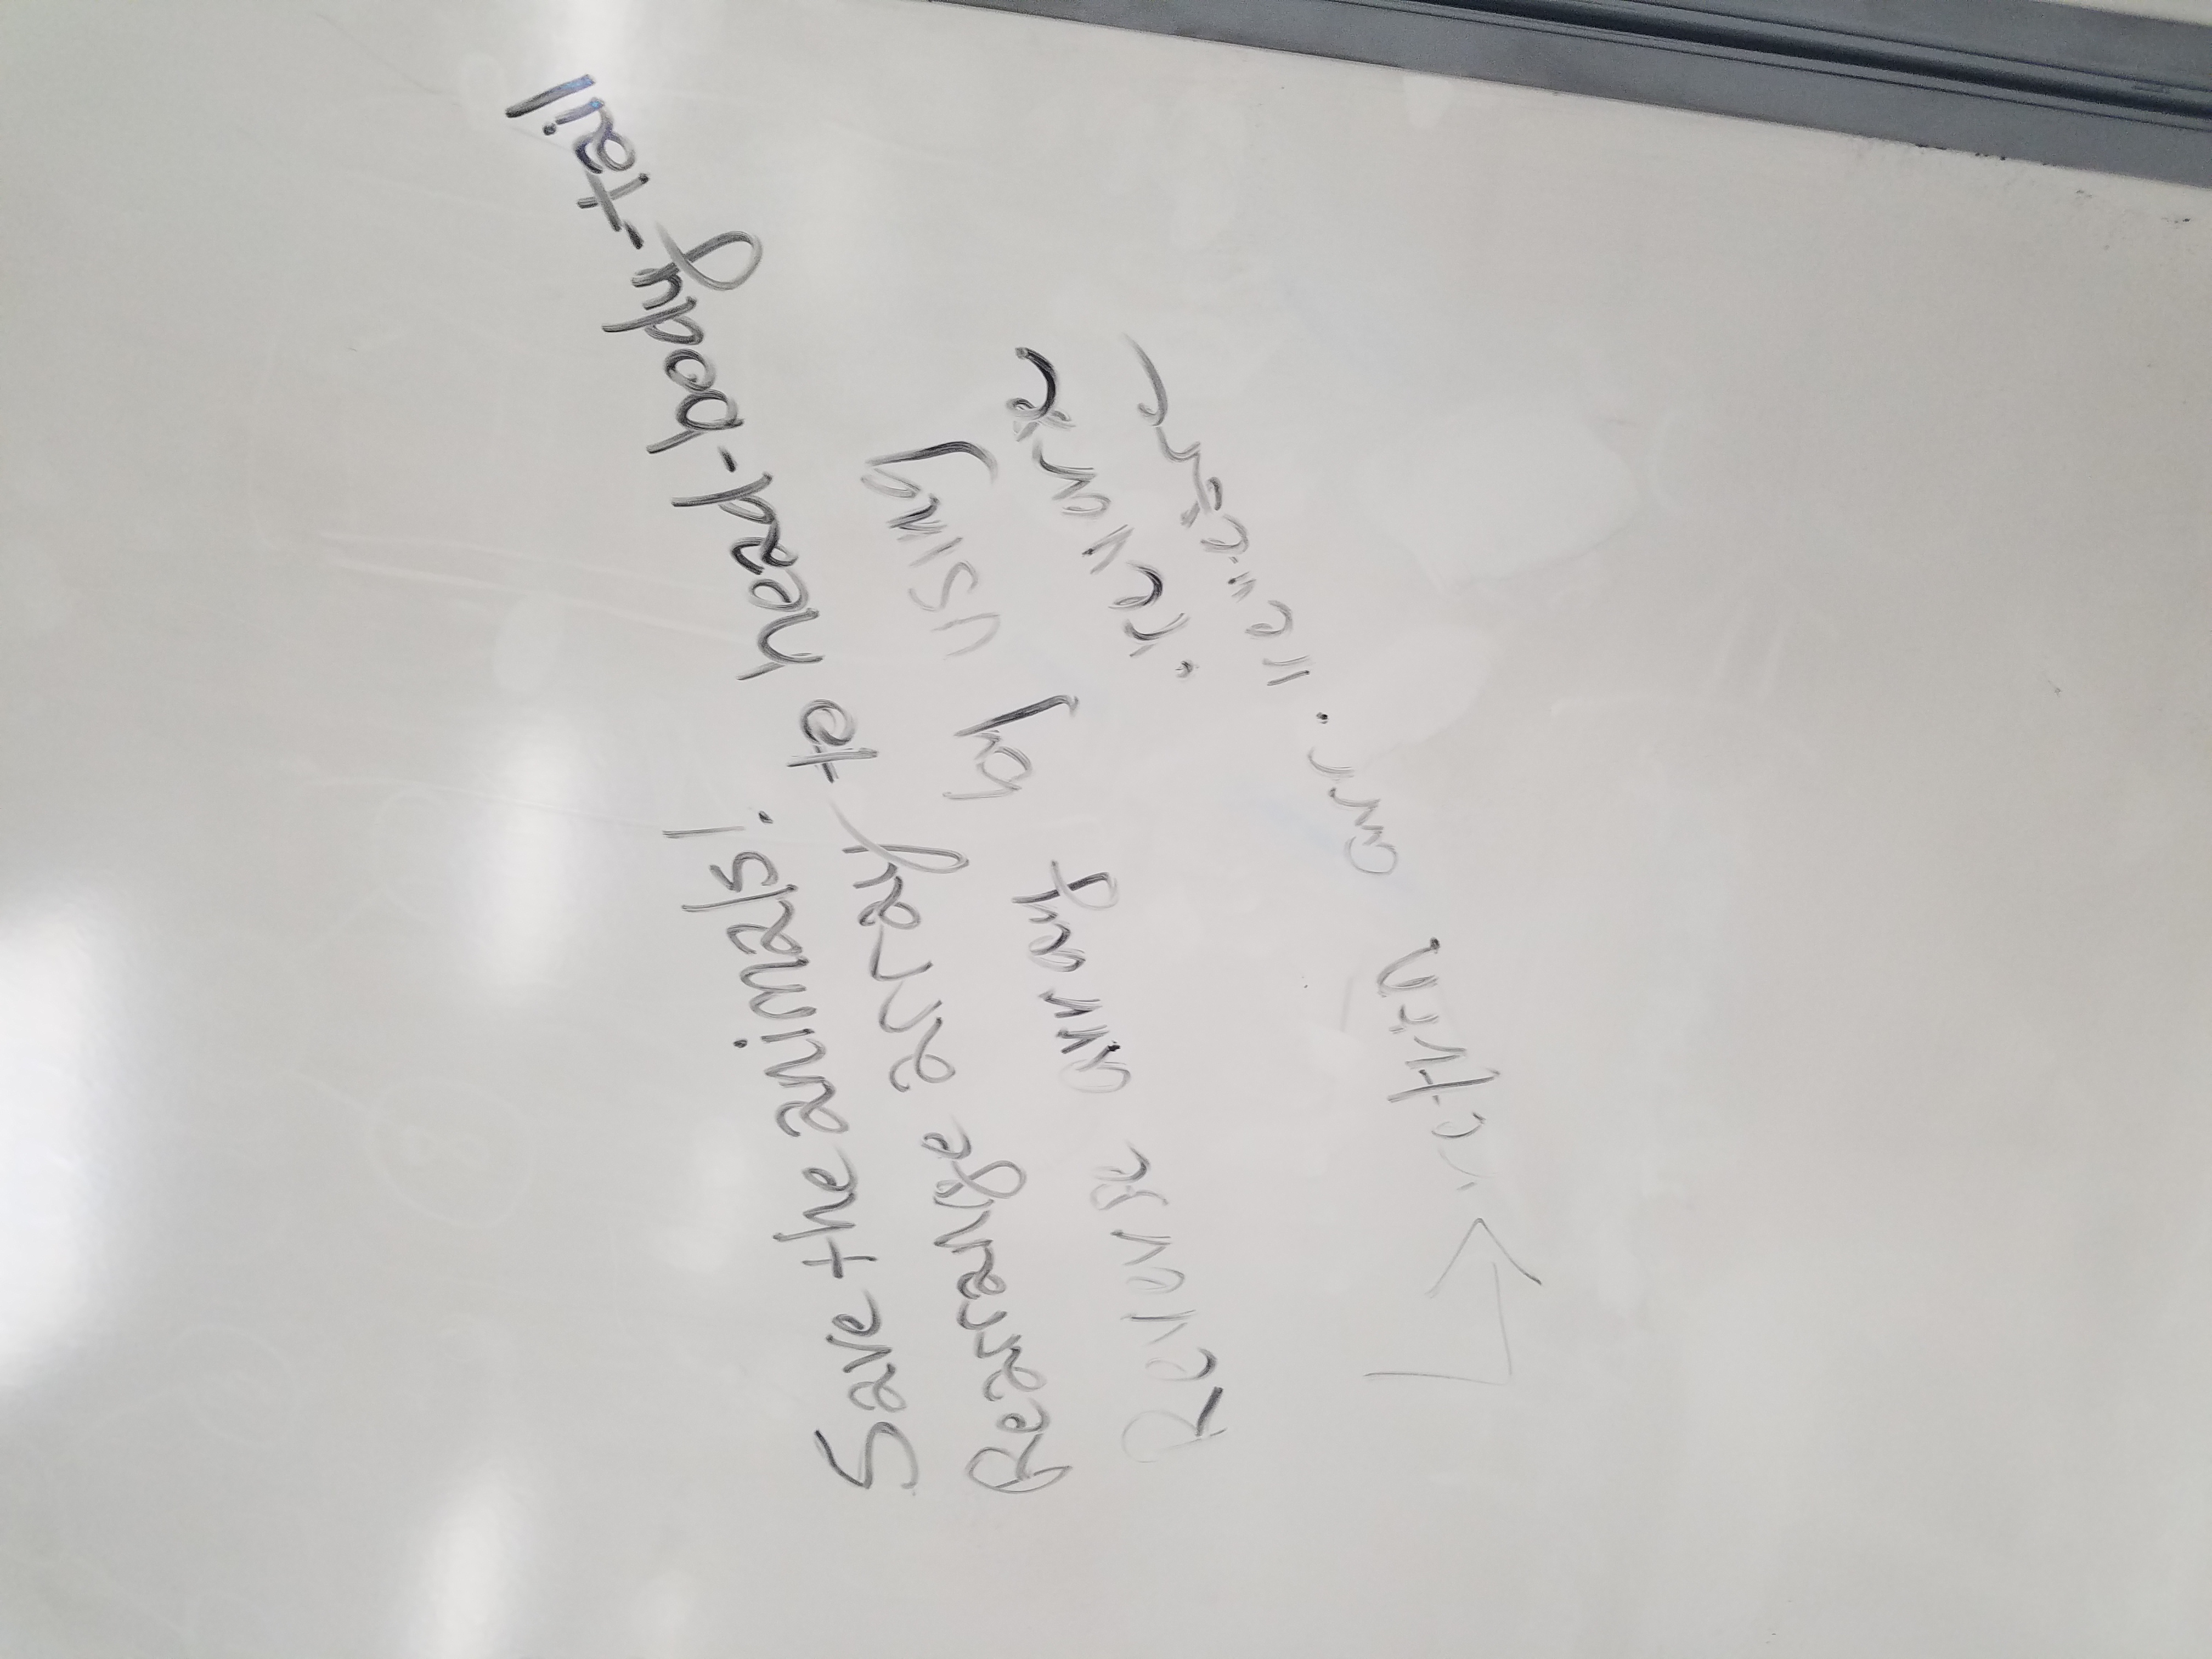 Save the animals!
Rearrange array to head-body-tail
Reverse array by using
.reverse
return arr.